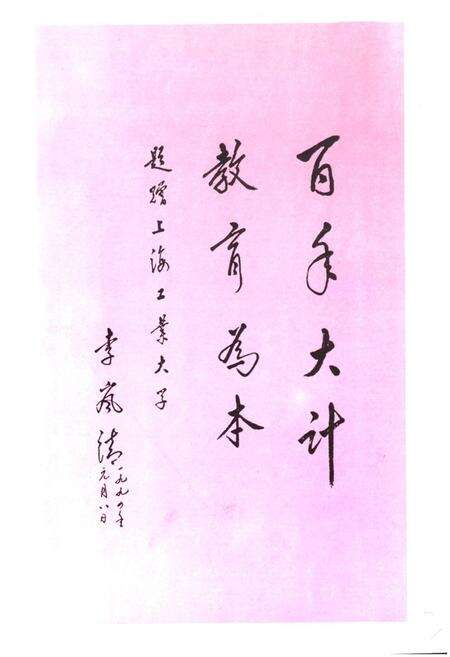 百年大计
教育为本
题赠上海工业大学
李岚清
一九九四年
元月八日